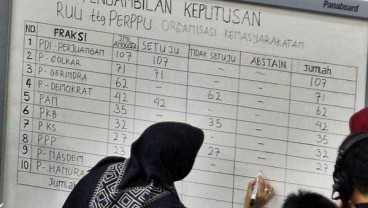 Panaboard
PENGAMBILAN KEPUTUSAN
RUU ttg PERPPU ORGANISASI KEMASYARAKATAM
NO FRAKSI JML ANGGOTA SETUJU TIDAK SETUJU ABSTAIN Jumlah
1 PDI-PERJUANGAN 107 107 - - 107
2 P-GOLKAR 71 71 - - 71
3 P-GERINDRA 62 62 - 62
4 P-DEMOKRAT 42 42 - - 42
5 PAN 35 35 - 35
6 PKB 32 - 32
7 PKS 27 27 - 27
8 PPP
9 P-NASDEM
10 P-HANURA
Jumlah